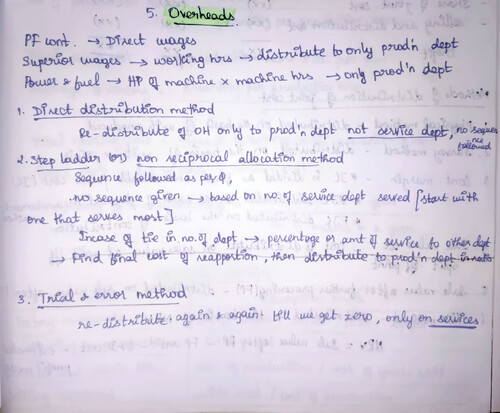 5. Overheads
PF cont. → Direct wages
Superior wages → working hrs → distribute to only prod'n dept
Power & fuel → HP of machine x machine hrs → only prod'n dept
1. Direct distribution method
Re-distribute of OH only to prod'n dept not service dept, no sequence followed
2. Step ladder (or) non reciprocal allocation method
Sequence followed as per Q,
no sequence given → based on no. of service dept served [start with
one that serves most]
Incase of tie in no. of dept → percentage or amt of service to other dept
→ Find final cost of reapportion, then distribute to prod'n dept in ratio
3. Trial & error method
re-distribute again & again till we get zero, only on services